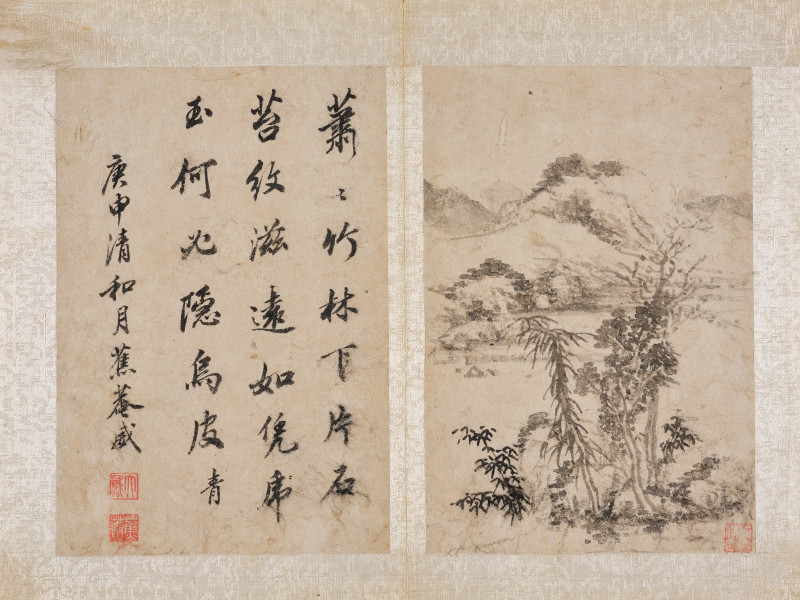 蕭〻竹林下片石
苔紋滋遠如凭席
玉何必隱烏皮青
庚申清和月蕉菴威